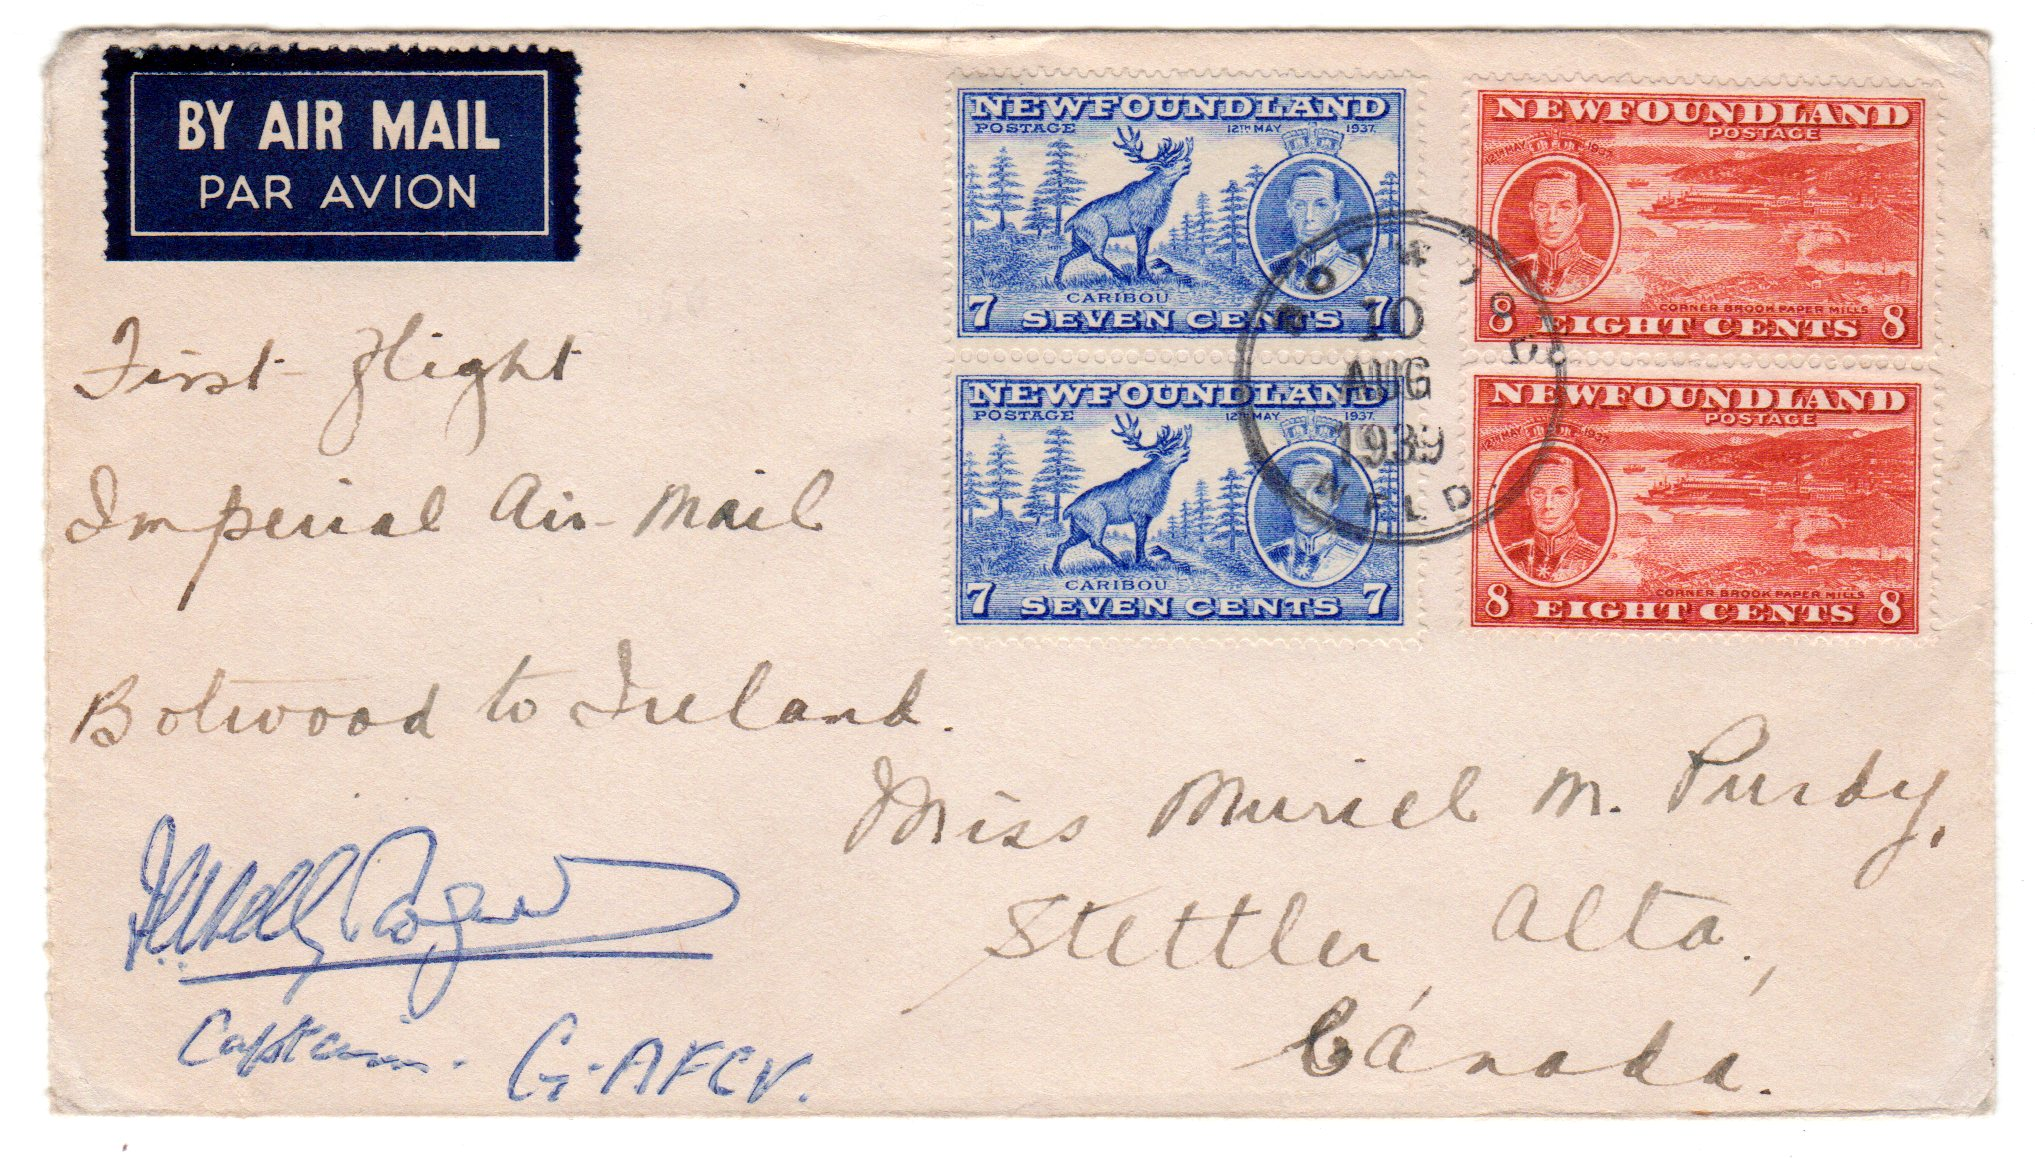 BY AIR MAIL
PAR AVION
NEWFOUNDLAND
POSTAGE 12TH MAY 1937.
CARIBOU
7 SEVEN CENTS 7
NEWFOUNDLAND
POSTAGE
12TH MAY 1937.
CORNER BROOK PAPER MILLS
8 EIGHT CENTS 8
NEWFOUNDLAND
POSTAGE 12TH MAY 1937.
CARIBOU
7 SEVEN CENTS 7
NEWFOUNDLAND
POSTAGE
12TH MAY 1937.
CORNER BROOK PAPER MILLS
8 EIGHT CENTS 8
BOTWOOD
10
AUG
1939
NFLD.
First Flight
Imperial Air Mail
Botwood to Ireland.
Miss Muriel M. Purdy,
Stettler Alta.,
Canada.
Captain. G-AFCV.